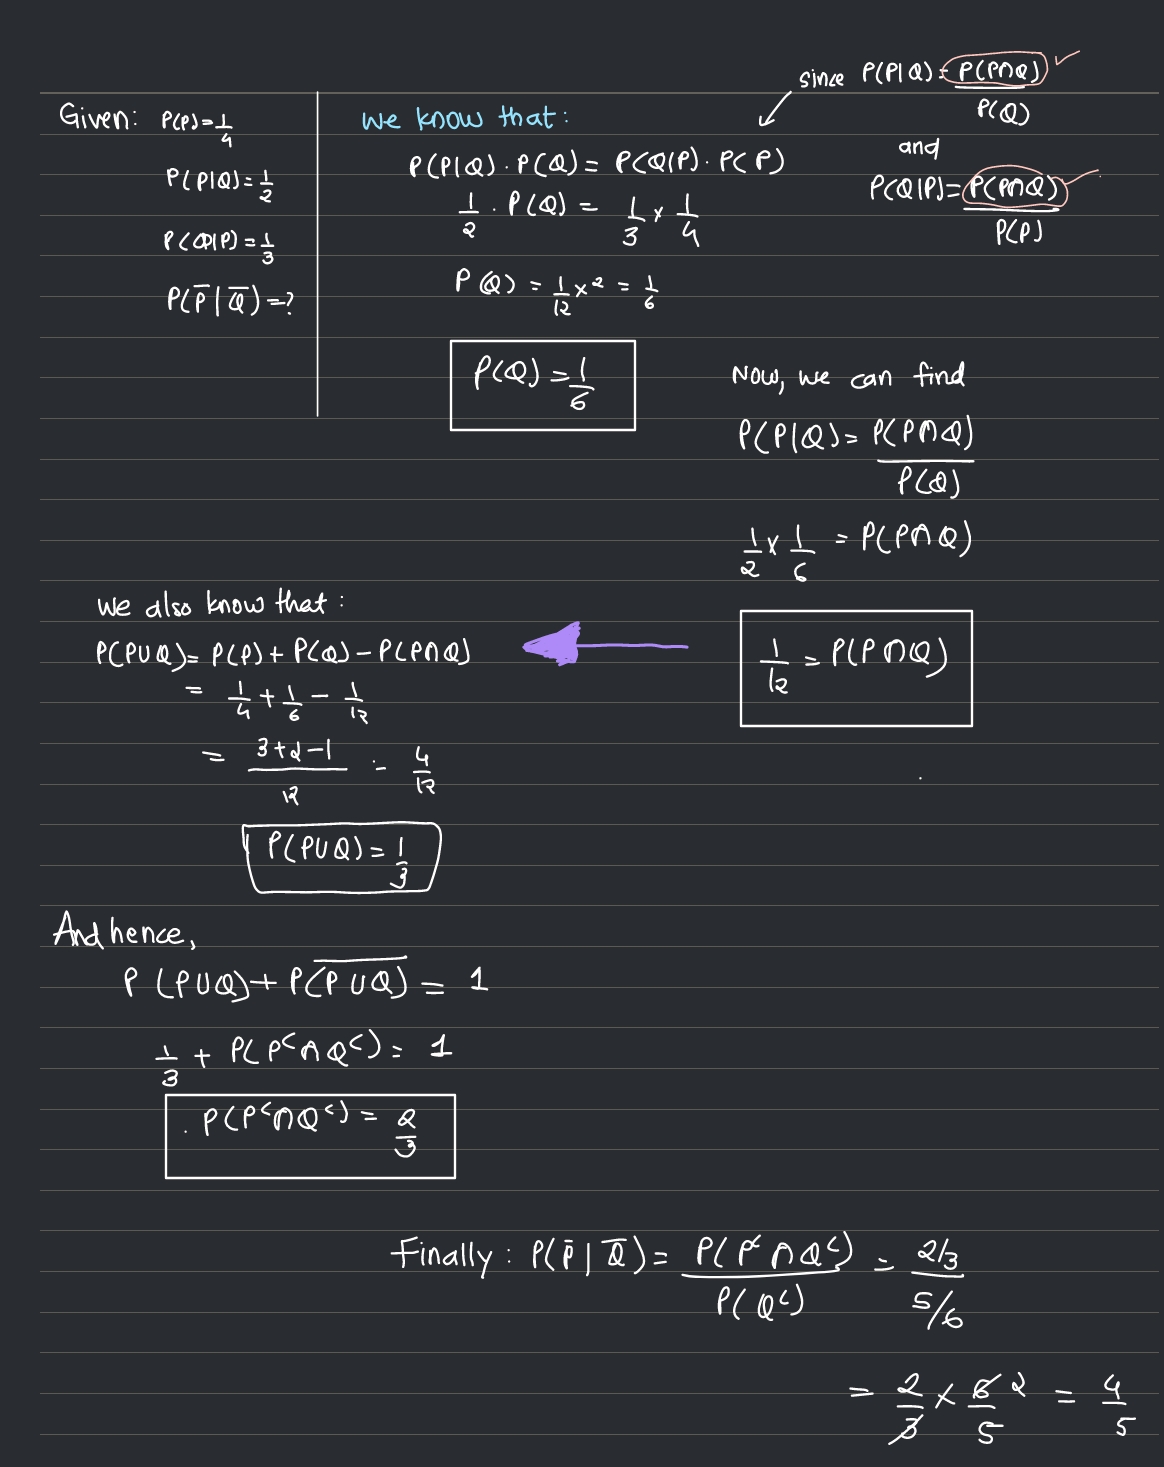 Given: P(P)=1/4
P(P|Q)=1/2
P(Q|P)=1/3
P(P̅|Q̅)=?
We know that:
P(P|Q)·P(Q)=P(Q|P)·P(P)
1/2·P(Q)=1/3×1/4
P(Q)=1/12×2=1/6
P(Q)=1/6
since P(P|Q)=P(P∩Q)/P(Q) ✓
and
P(Q|P)=P(P∩Q)/P(P) ✓
Now, we can find
P(P|Q)=P(P∩Q)/P(Q)
1/2×1/6=P(P∩Q)
1/12=P(P∩Q)
We also know that:
P(P∪Q)=P(P)+P(Q)-P(P∩Q)
=1/4+1/6-1/12
=3+2-1/12=4/12
P(P∪Q)=1/3
And hence,
P(P∪Q)+P(\overline{P∪Q})=1
1/3+P(Pᶜ∩Qᶜ)=1
P(Pᶜ∩Qᶜ)=2/3
Finally: P(P̅|Q̅)=P(Pᶜ∩Qᶜ)/P(Qᶜ)=2/3/5/6
=2/3×6/5 2=4/5